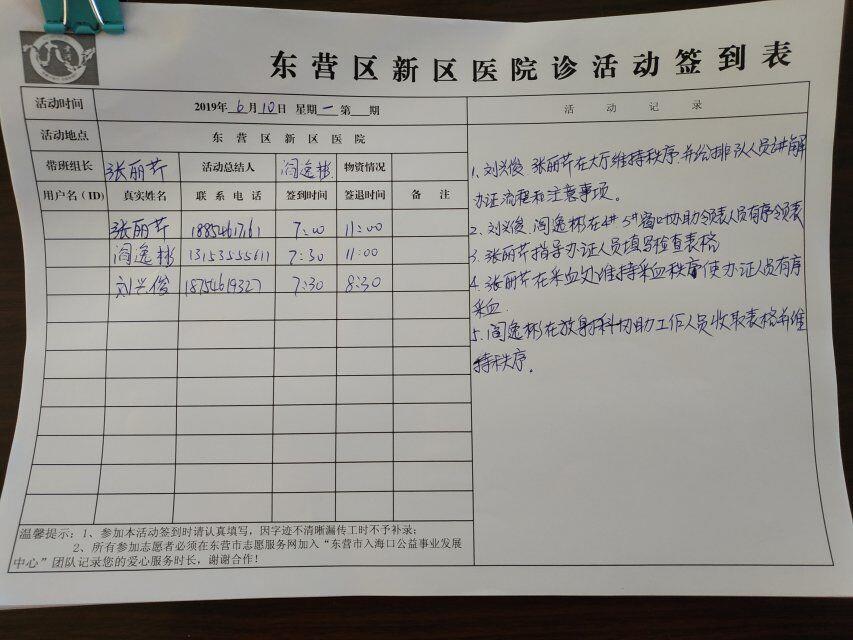 东营区新区医院诊活动签到表
活动时间 2019年6月10日 星期一 第 期 活动记录
活动地点 东营区新区医院
带班组长 张丽芹 活动总结人 阎逸彬 物资情况
用户名(ID) 真实姓名 联系电话 签到时间 签退时间 备注
张丽芹 7:00 11:00
阎逸彬 13153555611 7:30 11:00
刘兴俊 18754619327 7:30 8:30
1、刘兴俊、张丽芹在大厅维持秩序,并给排队人员讲解
办证流程和注意事项。
2、刘兴俊、阎逸彬在4#5#窗口协助领表人员有序领表
3、张丽芹指导办证人员填写检查表格
4、张丽芹在采血处维持采血秩序使办证人员有序
采血.
5、阎逸彬在放射科协助工作人员收取表格并维
持秩序.
温馨提示:1、参加本活动签到时请认真填写,因字迹不清晰漏传工时不予补录;
2、所有参加志愿者必须在东营市志愿服务网加入“东营市入海口公益事业发展
中心”团队记录您的爱心服务时长,谢谢合作!